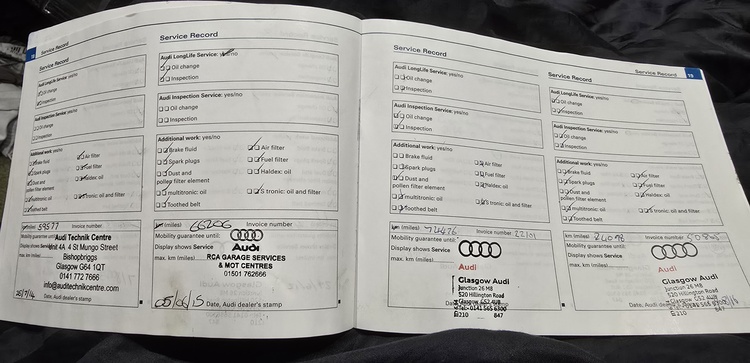 Service Record
Audi LongLife Service: yes/no
Oil change
Inspection
Audi Inspection Service: yes/no
Oil change
Inspection
Additional work: yes/no
Brake fluid
Air filter
Spark plugs
Fuel filter
Dust and
Haldex: oil
pollen filter element
multitronic: oil
S tronic: oil and filter
Toothed belt
(miles) 59577 Invoice number
Mobility guarantee until:
Audi Technik Centre
Display shows Service
Unit 4A 4 St Mungo Street
Bishopbriggs
max. km (miles)
Glasgow G64 1QT
0141 772 7666
info@auditechnikcentre.com
Date, Audi dealer's stamp
Service Record
Audi LongLife Service: yes/no
Oil change
Inspection
Audi Inspection Service: yes/no
Oil change
Inspection
Additional work: yes/no
Brake fluid
Air filter
Spark plugs
Fuel filter
Dust and
Haldex: oil
pollen filter element
multitronic: oil
S tronic: oil and filter
Toothed belt
km (miles) 66206 Invoice number
Mobility guarantee until:
Display shows Service
Audi
max. km (miles)
RCA GARAGE SERVICES
& MOT CENTRES
01501 762666
05/06/15 Date, Audi dealer's stamp
Service Record
Audi LongLife Service: yes/no
Oil change
Inspection
Audi Inspection Service: yes/no
Oil change
Inspection
Additional work: yes/no
Brake fluid
Air filter
Spark plugs
Fuel filter
Dust and
Haldex: oil
pollen filter element
multitronic: oil
S tronic: oil and filter
Toothed belt
km (miles) 74476 Invoice number
Mobility guarantee until:
Display shows Service
max. km (miles)
Audi
Glasgow Audi
Junction 26 M8
520 Hillington Road
Glasgow G52 4UB
Tel: 0141 565 6300
210 847
Service Record
Service Record 19
Audi LongLife Service: yes/no
Oil change
Inspection
Audi Inspection Service: yes/no
Oil change
Inspection
Additional work: yes/no
Brake fluid
Air filter
Spark plugs
Fuel filter
Dust and
Haldex: oil
pollen filter element
multitronic: oil
S tronic: oil and filter
Toothed belt
km (miles) Invoice number
Mobility guarantee until:
Display shows Service
max. km (miles)
Audi
Glasgow Audi
Junction 26 M8
520 Hillington Road
Glasgow G52 4UB
210 847